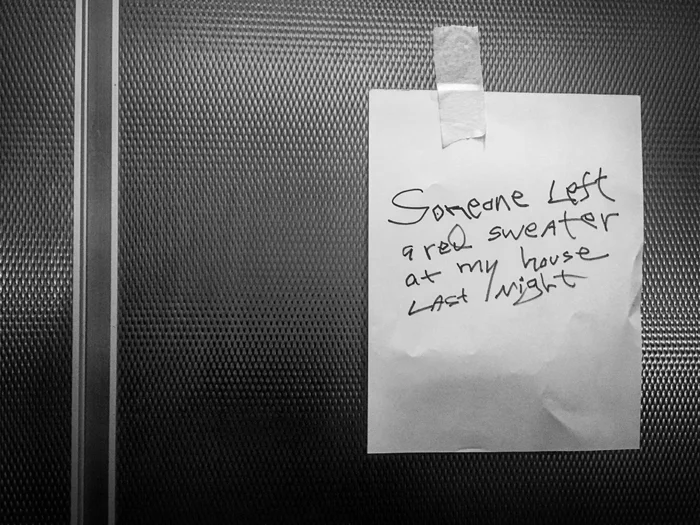 Someone Left
a red sweater
at my house
Last Night